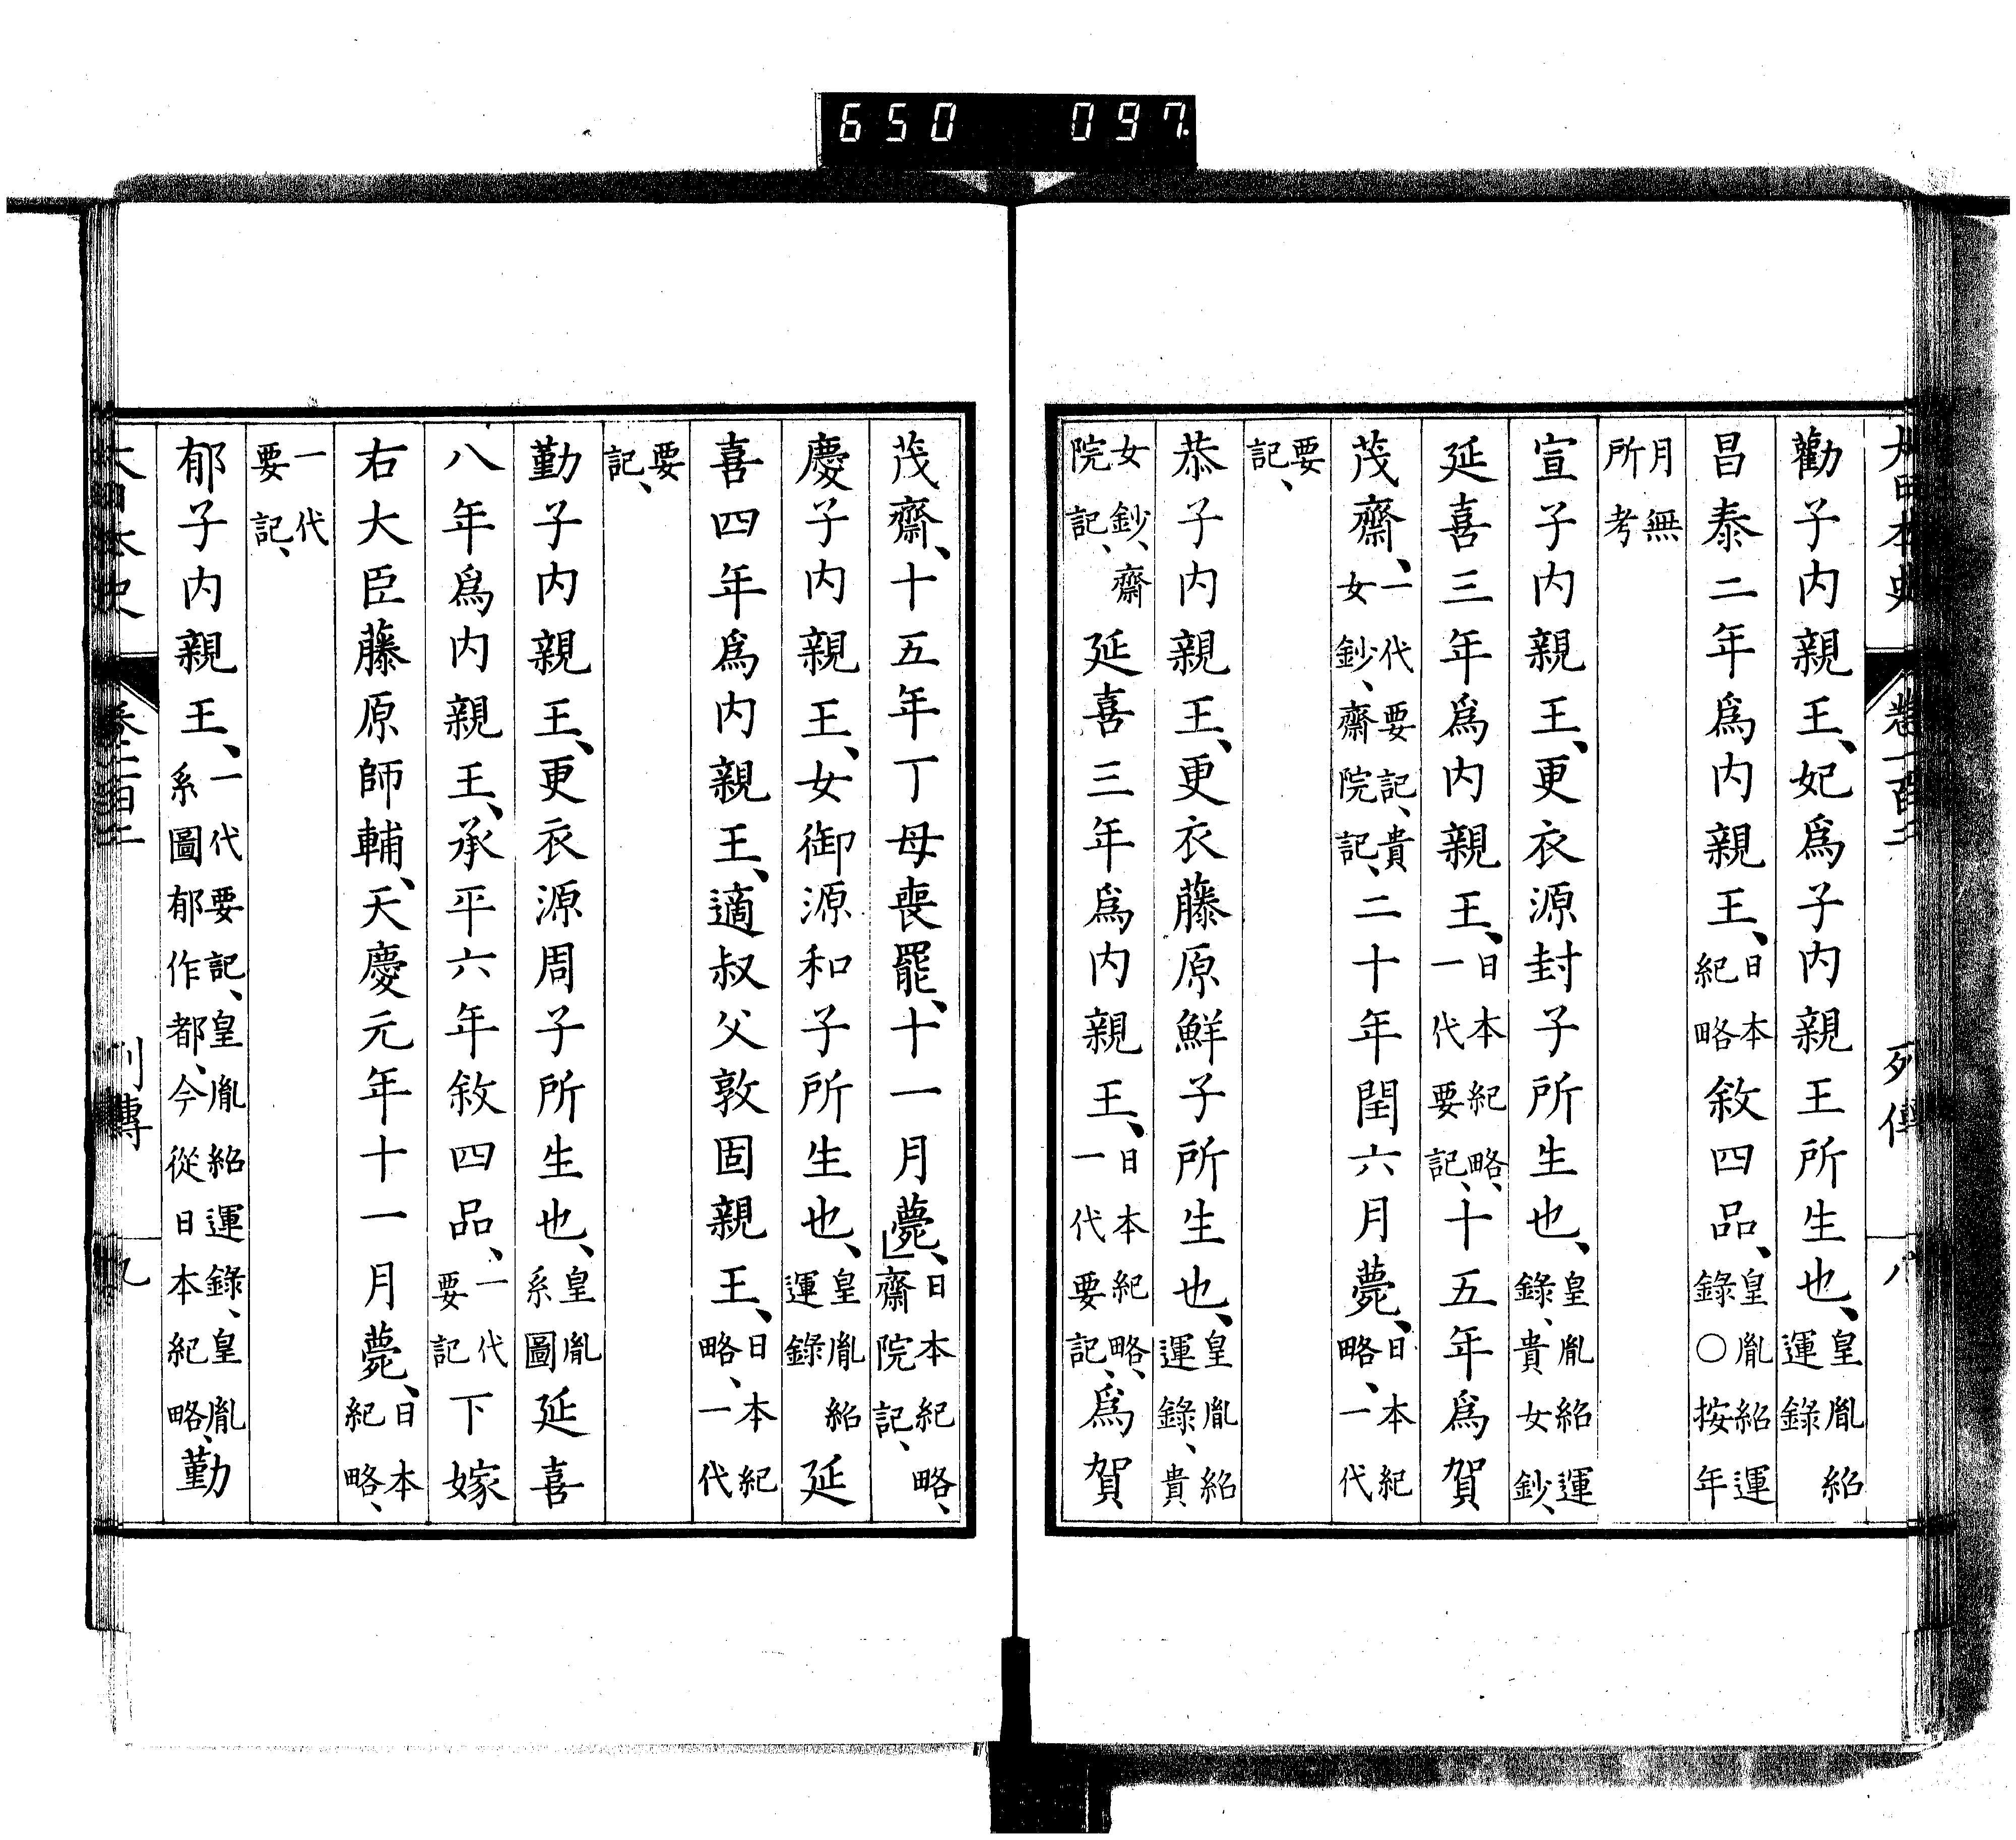 650 097.
大日本史 列傳 八
勸子内親王、妃爲子内親王所生也、皇胤紹運錄
昌泰二年爲内親王、日本紀略敘四品、皇胤紹運錄○按年
月無所考
宣子内親王、更衣源封子所生也、皇胤紹運錄、貴女鈔、
延喜三年爲内親王、日本紀略、一代要記、十五年爲賀
茂齋、一代要記、貴女鈔、齋院記、二十年閏六月薨、日本紀略、一代
要記、
恭子内親王、更衣藤原鮮子所生也、皇胤紹運錄、貴
女鈔、齋院記、延喜三年爲内親王、日本紀略、一代要記、爲賀
茂齋、十五年丁母喪罷、十一月薨、日本紀略、齋院記、
慶子内親王、女御源和子所生也、皇胤紹運錄延
喜四年爲内親王、適叔父敦固親王、日本紀略、一代
要記、
勤子内親王、更衣源周子所生也、皇胤系圖延喜
八年爲内親王、承平六年敘四品、一代要記下嫁
右大臣藤原師輔、天慶元年十一月薨、日本紀略、
一代要記、
郁子内親王、一代要記、皇胤紹運錄、皇胤系圖郁作都、今從日本紀略、勤
大日本史 列傳 九